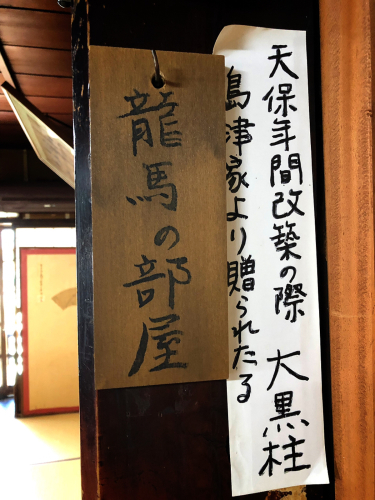 天保年間改築の際 大黒柱
島津家より贈られたる
龍馬の部屋